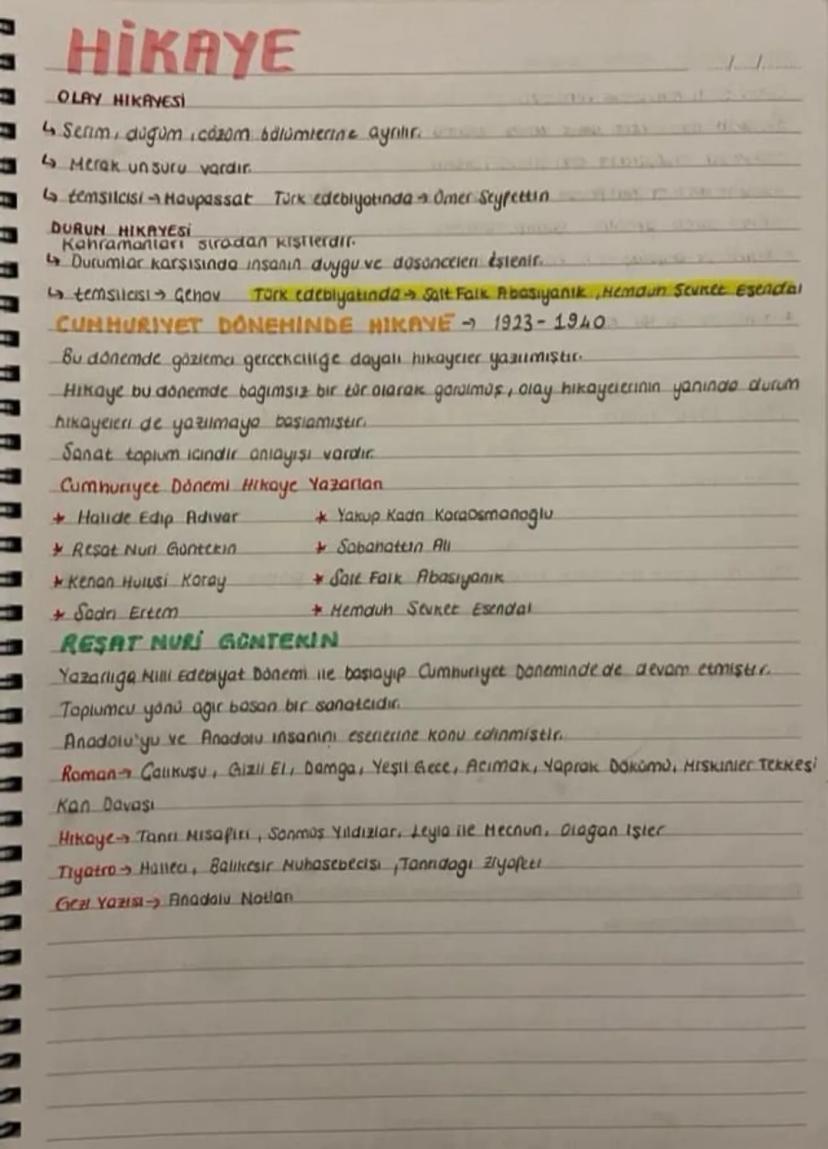 HİKAYE
/ /
OLAY HIKAYESİ
↳ Serim, düğüm, çözüm bölümlerine ayrılır.
↳ Merak unsuru vardır.
↳ temsilcisi → Maupassat Türk edebiyatında → Ömer Seyfettin
DURUN HIKAYESİ
Kahramanları sıradan kişilerdir.
↳ Durumlar karşısında insanın duygu ve düşünceleri işlenir.
↳ temsilcisi → Çehov Türk edebiyatında → Sait Faik Abasıyanık, Memduh Şevket Esendal
CUMHURIYET DÖNEMİNDE HIKAYE → 1923-1940
Bu dönemde gözlemci gerçekçiliğe dayalı hikayeler yazılmıştır.
Hikaye bu dönemde bağımsız bir tür olarak görülmüş, olay hikayelerinin yanında durum
hikayeleri de yazılmaya başlamıştır.
Sanat toplum içindir anlayışı vardır.
Cumhuriyet Dönemi Hikaye Yazarları
* Halide Edip Adıvar * Yakup Kadri Karaosmanoğlu
* Reşat Nuri Güntekin * Sabahattin Ali
* Kenan Hulusi Koray * Sait Faik Abasıyanık
* Sadri Ertem * Memduh Şevket Esendal
REŞAT NURİ GÜNTEKİN
Yazarlığa Milli Edebiyat Dönemi ile başlayıp Cumhuriyet Döneminde de devam etmiştir.
Toplumcu yönü ağır basan bir sanatçıdır.
Anadolu'yu ve Anadolu insanını eserlerine konu edinmiştir.
Roman → Çalıkuşu, Gizli El, Damga, Yeşil Gece, Acımak, Yaprak Dökümü, Miskinler Tekkesi
Kan Davası
Hikaye → Tanrı Misafiri, Sönmüş Yıldızlar, Leyla ile Mecnun, Olağan İşler
Tiyatro → Hülleci, Balıkesir Muhasebecisi, Tanrıdağı Ziyafeti
Gezi Yazısı → Anadolu Notları